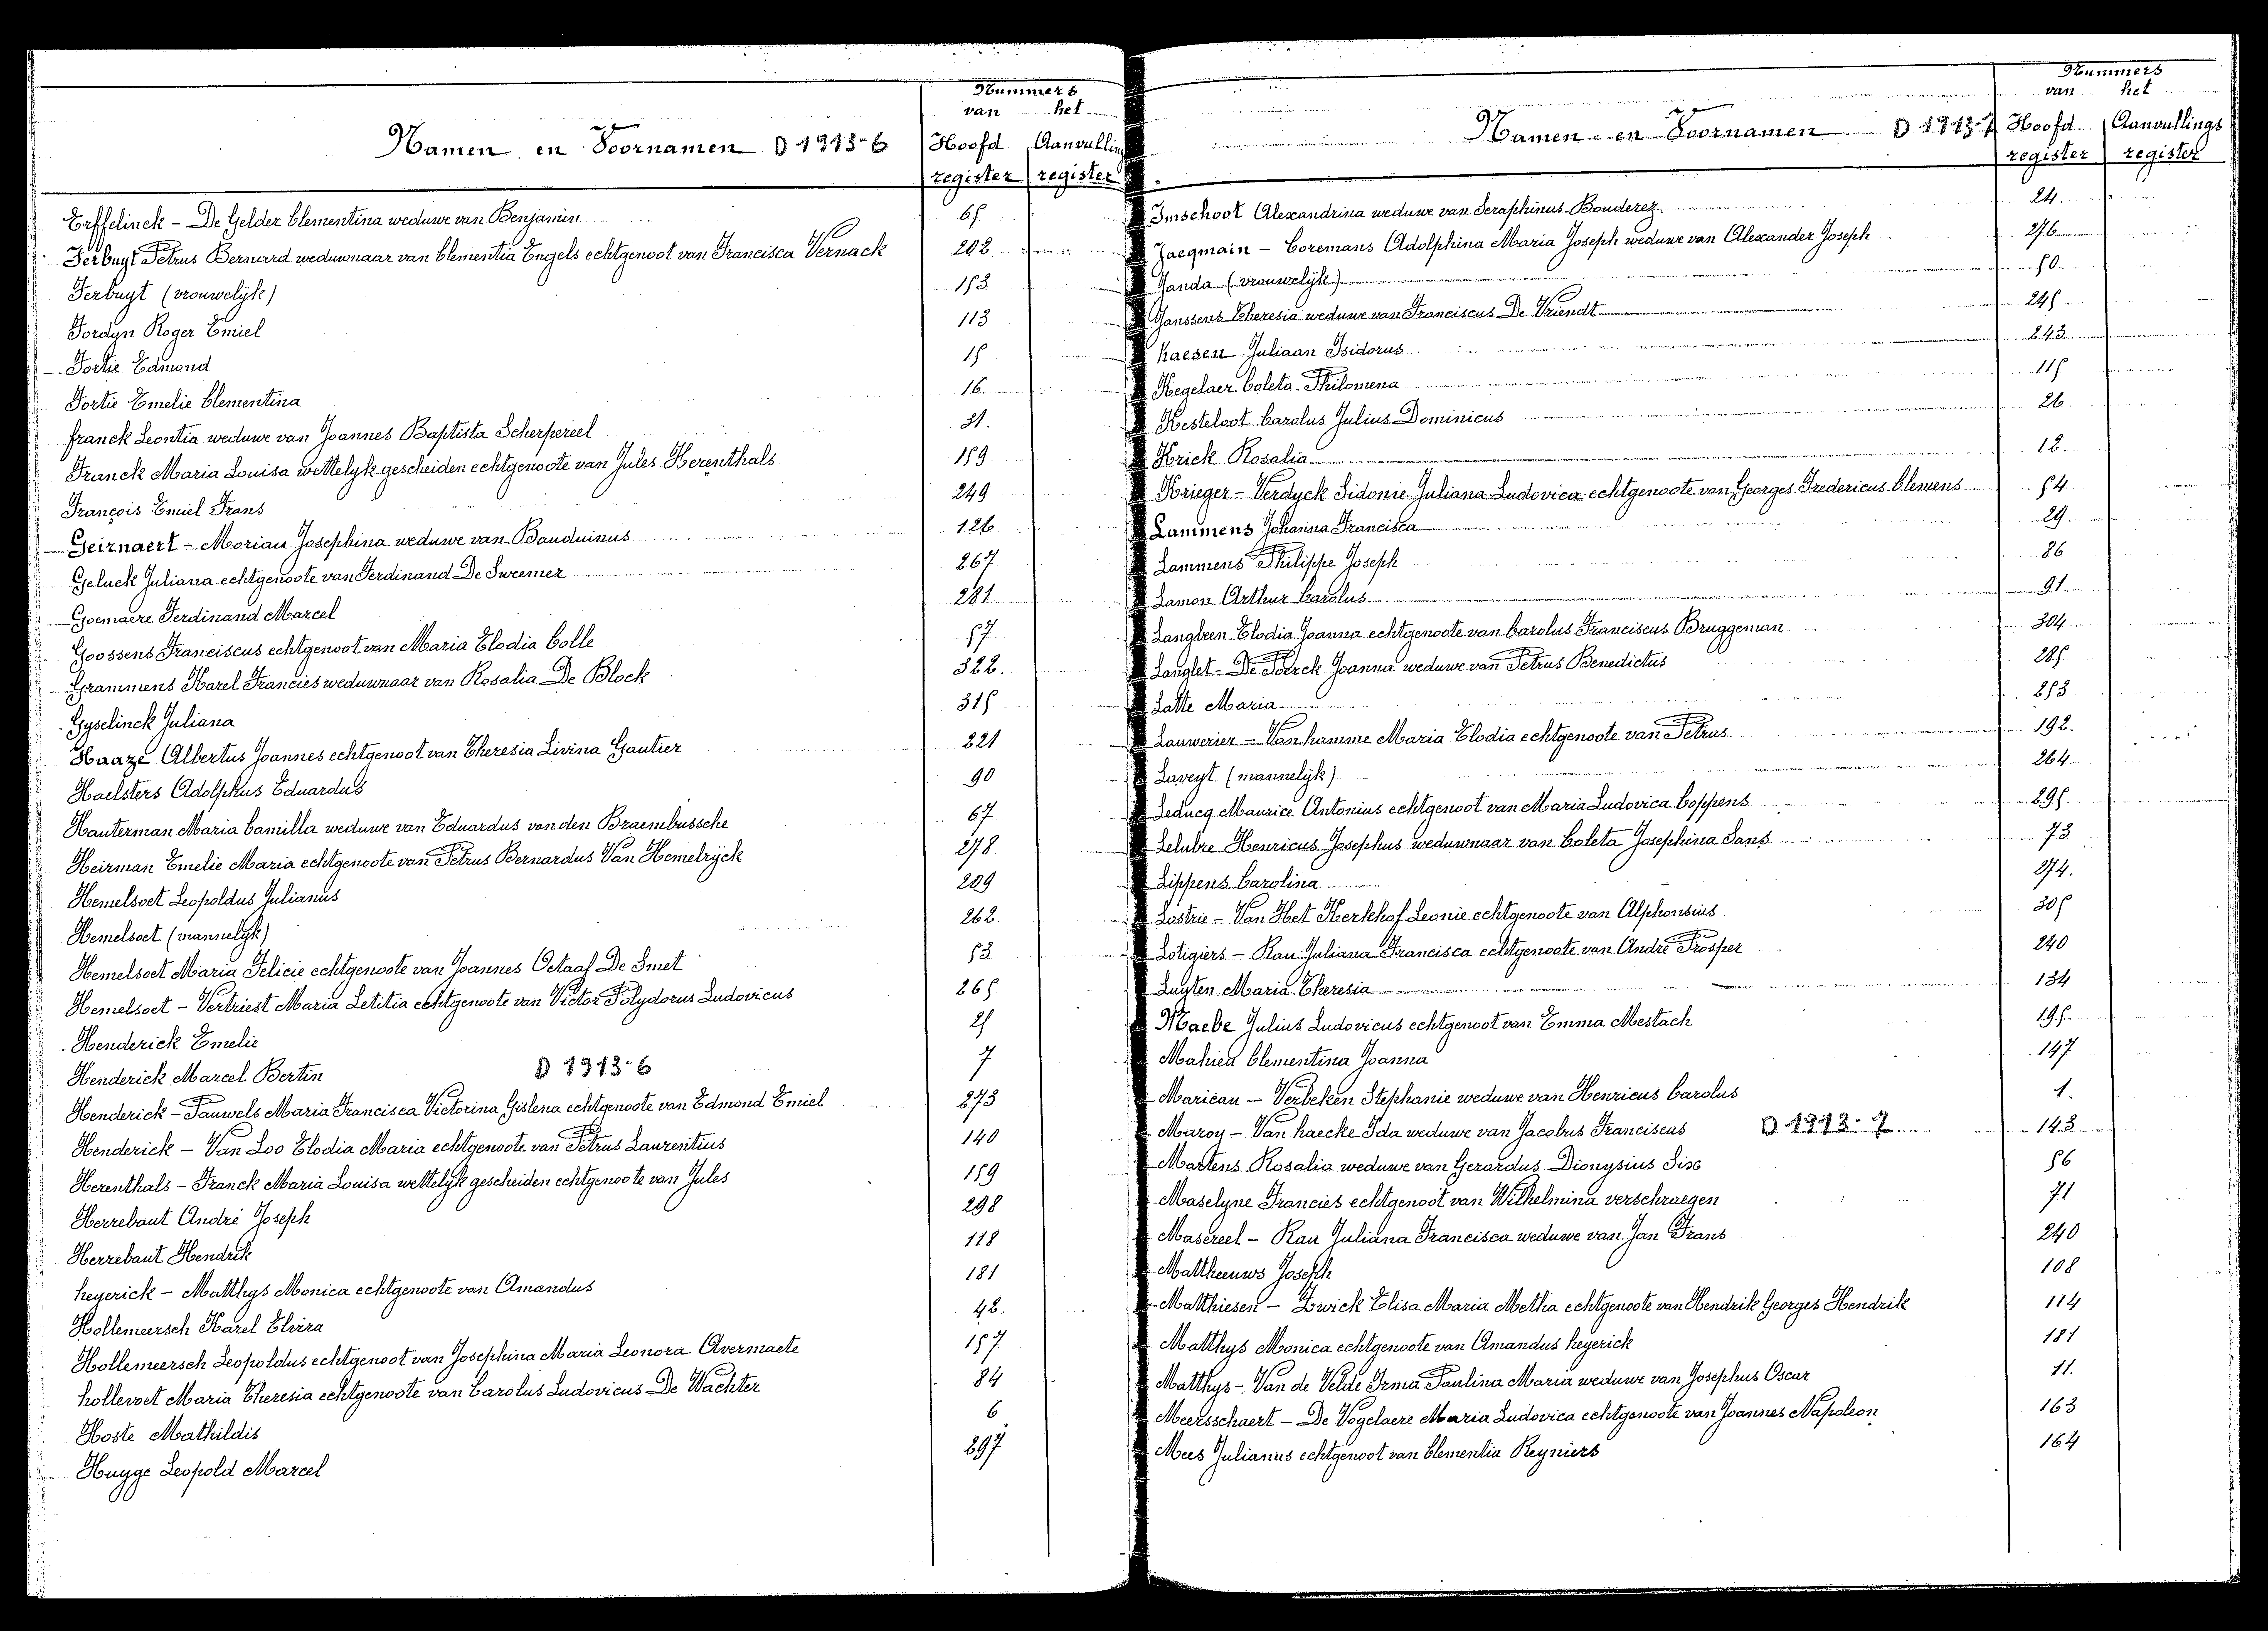 Nummers
van het
Namen en Voornamen D 1913-6 Hoofd Aanvulling
register register
Erffelinck - De Gelder Clementina weduwe van Benjamin 65
Ferbuyt Petrus Bernard weduwnaar van Clementia Engels echtgenoot van Francisca Vernack 202
Ferbuyt (vrouwelijk) 153
Fordyn Roger Emiel 113
Fortie Edmond 15
Fortie Emelie Clementina 16
Franck Leontia weduwe van Joannes Baptista Scherpereel 31.
Franck Maria Louisa wettelyk gescheiden echtgenoote van Jules Herenthals 159
François Emiel Frans 249
Geirnaert - Moriau Josephina weduwe van Bauduinus 126.
Geluck Juliana echtgenoote van Ferdinand De Sweemer 267
Goemaere Ferdinand Marcel 281
Goossens Franciscus echtgenoot van Maria Elodia Colle 57
Grammens Karel Francies weduwnaar van Rosalia De Block 322.
Gyselinck Juliana 315
Haaze Albertus Joannes echtgenoot van Theresia Livina Gautier 221
Haelsters Adolphus Eduardus 90
Hauterman Maria Camilla weduwe van Eduardus van den Braembussche 67
Heirman Emelie Maria echtgenoote van Petrus Bernardus Van Hemelryck 278
Hemelsoet Leopoldus Julianus 209
Hemelsoet (mannelyk) 262.
Hemelsoet Maria Felicie echtgenoote van Joannes Octaaf De Smet 53
Hemelsoet - Vertriest Maria Letitia echtgenoote van Victor Polydorus Ludovicus 265
Henderick Emelie 25
Henderick Marcel Bertin D 1913-6 7
Henderick - Pauwels Maria Francisca Victorina Gislena echtgenoote van Edmond Emiel 273
Henderick - Van Loo Elodia Maria echtgenoote van Petrus Laurentius 140
Herenthals - Franck Maria Louisa wettelyk gescheiden echtgenoote van Jules 159
Herrebaut André Joseph 298
Herrebaut Hendrik 118
heyerick - Matthys Monica echtgenoote van Amandus 181
Hollemeersch Karel Elvira 42.
Hollemeersch Leopoldus echtgenoot van Josephina Maria Leonora Avermaete 157
hollevoet Maria Theresia echtgenoote van Carolus Ludovicus De Wachter 84
Hoste Mathildis 6
Huyge Leopold Marcel 297
Nummers
van het
Namen en Voornamen D 1913-7 Hoofd Aanvullings
register register
Imschoot Alexandrina weduwe van Seraphinus Bouderez 24.
Jacqmain - Coremans Adolphina Maria Joseph weduwe van Alexander Joseph 276
Janda (vrouwelijk) 50
Janssens Theresia weduwe van Franciscus De Vriendt 245
Kaesen Juliaan Isidorus 243
Kegelaer Coleta Philomena 115
Kesteloot Carolus Julius Dominicus 26
Krick Rosalia 12.
Krieger - Verdyck Sidonie Juliana Ludovica echtgenoote van Georges Fredericus Clemens 54
Lammens Johanna Francisca 29
Lammens Philippe Joseph 86
Lamon Arthur Carolus 91
Langbeen Elodia Joanna echtgenoote van Carolus Franciscus Bruggeman 304
Langlet - De Poerck Joanna weduwe van Petrus Benedictus 285
Latte Maria 253
Lauwerier - Van hamme Maria Elodia echtgenoote van Petrus 192.
Laveyt (mannelijk) 264
Leducq Maurice Antonius echtgenoot van Maria Ludovica Coppens 295
Lelubre Henricus Josephus weduwnaar van Coleta Josephina Sans 73
Lippens Carolina 274.
Lostrie - Van Het Kerkhof Leonie echtgenoote van Alphonsius 305
Lotigiers - Rau Juliana Francisca echtgenoote van André Prosper 240
Luyten Maria Theresia 134
Maebe Julius Ludovicus echtgenoot van Emma Mestach 195
Mahieu Clementina Joanna 147
Maricau - Verbeken Stephanie weduwe van Henricus Carolus 1.
Maroy - Van haecke Ida weduwe van Jacobus Franciscus D 1913-7 143
Martens Rosalia weduwe van Gerardus Dionysius Six 56
Maselyne Francies echtgenoot van Wilhelmina verschraegen 71
Masereel - Rau Juliana Francisca weduwe van Jan Frans 240
Mattheeuws Joseph 108
Matthiesen - Zwick Elisa Maria Metha echtgenoote van Hendrik Georges Hendrik 114
Matthys Monica echtgenoote van Amandus heyerick 181
Matthys - Van de Velde Irma Paulina Maria weduwe van Josephus Oscar 11.
Meersschaert - De Vogelaere Maria Ludovica echtgenoote van Joannes Napoleon 163
Mees Julianus echtgenoot van Clementia Reyniers 164